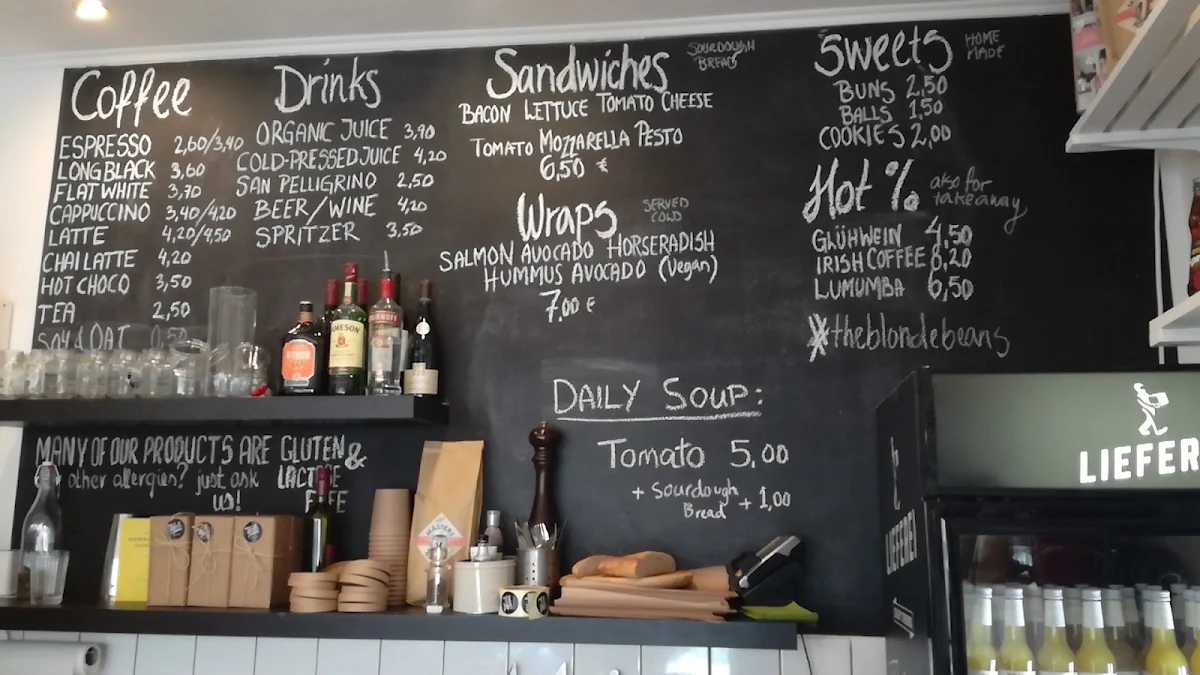 Coffee
ESPRESSO 2,60/3,40
LONG BLACK 3,60
FLAT WHITE 3,70
CAPPUCCINO 3,40/4,20
LATTE 4,20/4,50
CHAI LATTE 4,20
HOT CHOCO 3,50
TEA 2,50
SOY & OAT 0,50
Drinks
ORGANIC JUICE 3,90
COLD-PRESSED JUICE 4,20
SAN PELLIGRINO 2,50
BEER/WINE 4,20
SPRITZER 3,50
Sandwiches SOURDOUGH
BREAD
BACON LETTUCE TOMATO CHEESE
TOMATO MOZZARELLA PESTO
6,50 €
Wraps SERVED
COLD
SALMON AVOCADO HORSERADISH
HUMMUS AVOCADO (Vegan)
7,00 €
DAILY SOUP:
Tomato 5,00
+ Sourdough
Bread +1,00
Sweets HOME
MADE
BUNS 2,50
BALLS 1,50
COOKIES 2,00
Hot % also for
takeaway
GLÜHWEIN 4,50
IRISH COFFEE 8,20
LUMUMBA 6,50
#theblondebeans
MANY OF OUR PRODUCTS ARE GLUTEN &
other allergies? just ask
us!
JAMESON
SMIRNOFF
LIEFERE
LIEFERE!